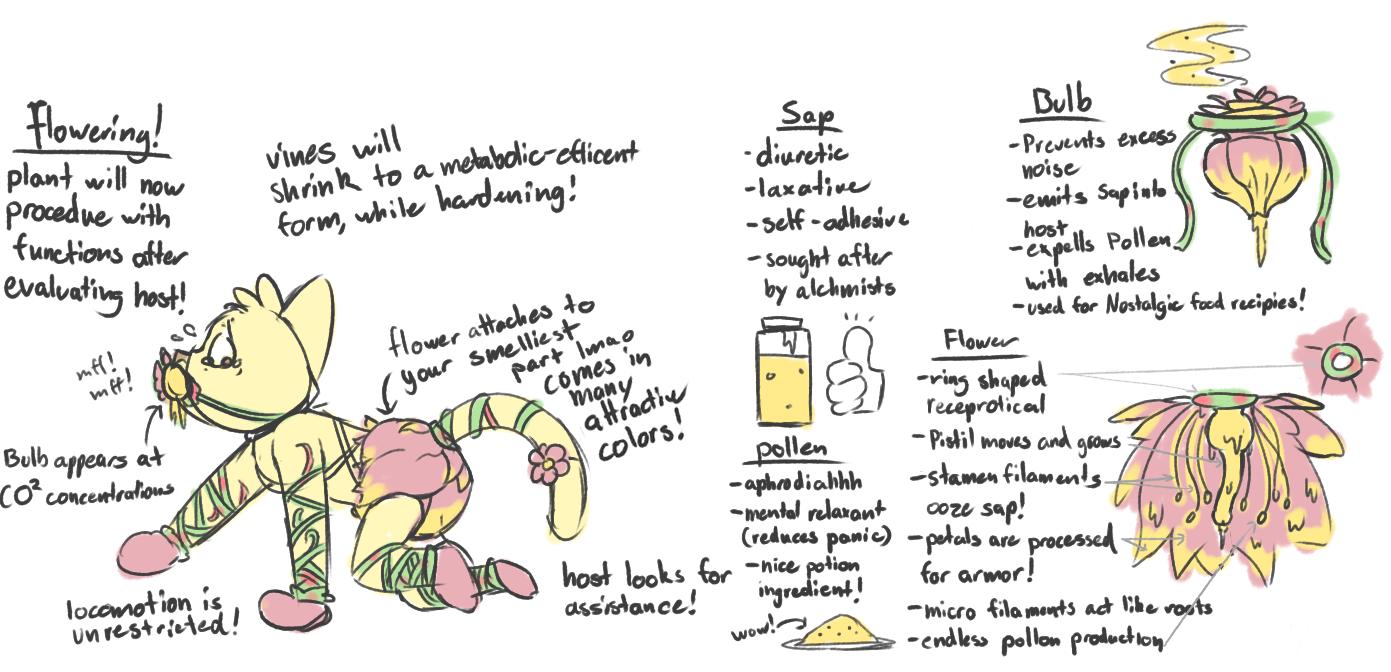 Flowering!
plant will now
procedue with
functions after
evaluating host!
vines will
shrink to a metabolic-efficent
form, while hardening!
mff!
mff!
Bulb appears at
CO² concentrations
flower attaches to
your smelliest
part lmao
comes in
many
attractive
colors!
locomotion is
unrestricted!
host looks for
assistance!
Sap
- diuretic
- laxative
- self-adhesive
- sought after
by alchmists
pollen
- aphrodiahhh
- mental relaxant
(reduces panic)
- nice potion
ingredient!
wow!
Bulb
- Prevents excess
noise
- emits Sap into
host
- expells Pollen
with exhales
- used for Nostalgic food recipies!
Flower
- ring shaped
receprotical
- Pistil moves and grows
- stamen filaments
ooze sap!
- petals are processed
for armor!
- micro filaments act like roots
- endless pollon production